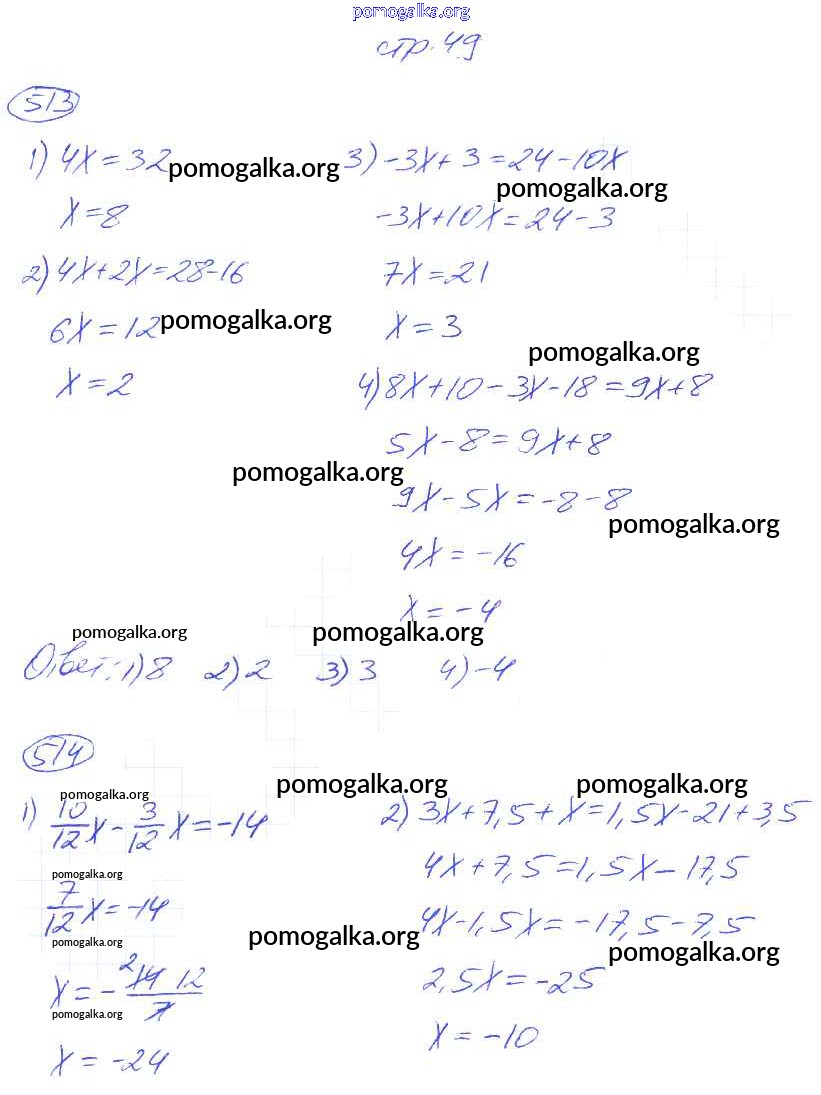 pomogalka.org
стр. 49
513
1) 4x = 32
pomogalka.org
x = 8
2) 4x + 2x = 28 - 16
6x = 12
pomogalka.org
x = 2
3) -3x + 3 = 24 - 10x
pomogalka.org
-3x + 10x = 24 - 3
7x = 21
x = 3
pomogalka.org
4) 8x + 10 - 3x - 18 = 9x + 8
5x - 8 = 9x + 8
pomogalka.org
9x - 5x = -8 - 8
pomogalka.org
4x = -16
x = -4
pomogalka.org pomogalka.org
Ответ: 1) 8 2) 2 3) 3 4) -4
514
pomogalka.org
1) 10/12 x - 3/12 x = -14
pomogalka.org
7/12 x = -14
pomogalka.org
x = - 2 14 12 / 7
pomogalka.org
x = -24
pomogalka.org pomogalka.org
2) 3x + 7,5 + x = 1,5x - 21 + 3,5
4x + 7,5 = 1,5x - 17,5
4x - 1,5x = -17,5 - 7,5
pomogalka.org
pomogalka.org
2,5x = -25
x = -10